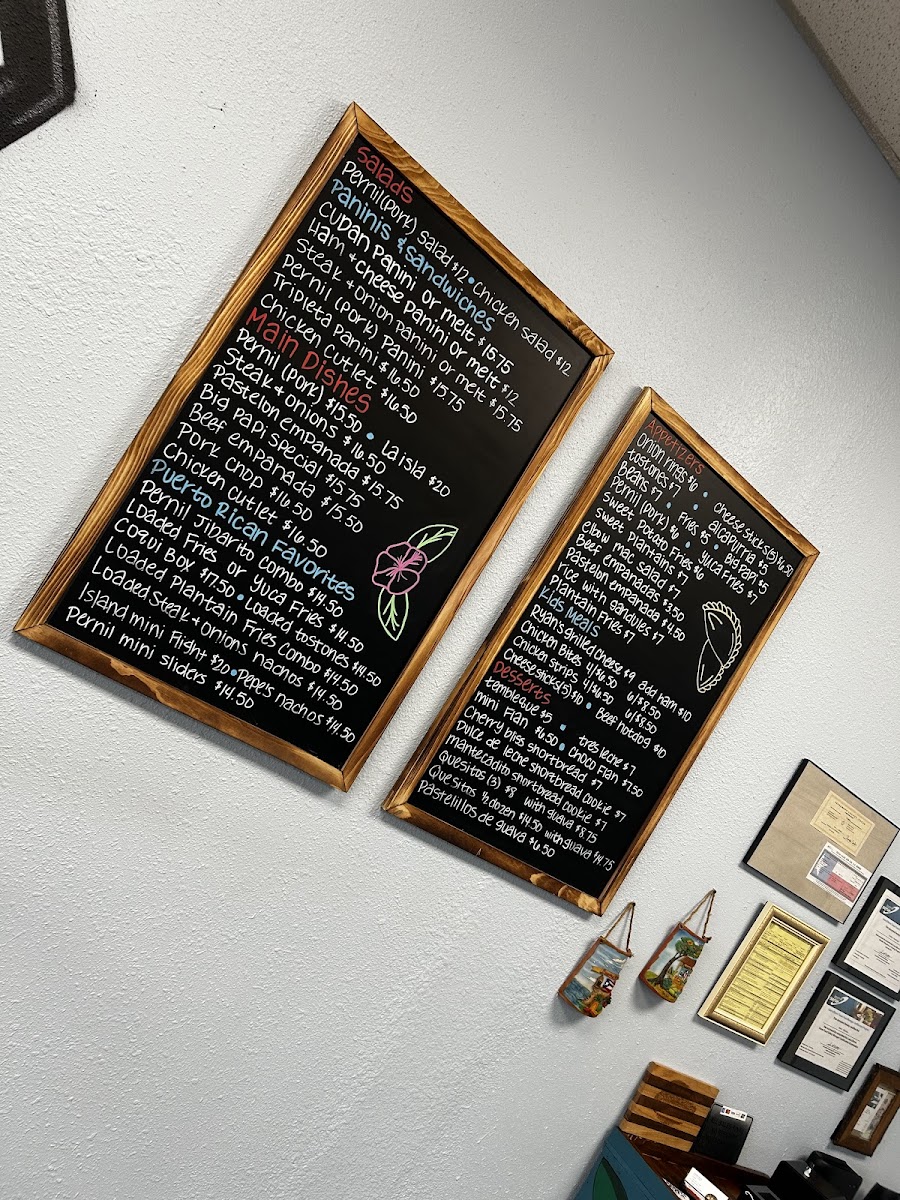 Salads
Pernil (pork) Salad $12 • Chicken salad $12
Paninis & Sandwiches
Cuban panini or melt $15.75
Ham + cheese panini or melt $12
Steak + onion panini or melt $15.75
Pernil (pork) panini $15.75
Tripleta panini $16.50
Chicken cutlet $16.50
Main Dishes
Pernil (pork) $15.50 • La isla $20
Steak + onions $16.50
Pastelon empanada $15.75
Big papi special $15.75
Beef empanada $15.50
Pork chop $16.50
Chicken cutlet $16.50
Puerto Rican Favorites
Pernil Jibarito combo $14.50
Loaded Fries or Yuca Fries $14.50
Coqui Box $17.50 • Loaded tostones $14.50
Loaded Plantain Fries Combo $14.50
Loaded Steak + onions nachos $14.50
Island mini Flight $20 • Pepe's nachos $14.50
Pernil mini sliders $14.50
Appetizers
Onion rings $6 • cheese sticks(5) $6.50
tostones $7 • alcapurria $5
Beans $7 • Fries $5 • Big Papi $5
Pernil (pork) $6 • yuca Fries $7
Sweet Potato Fries $6
Sweet plantains $7
elbow mac salad $7
Beef empanadas $3.50
Pastelon empanada $4.50
Rice with gandules $7
Plantain Fries $7
Kids Meals
Ryan's grilled cheese $9 add ham $10
Chicken Bites 4/$6.50 6/$8.50
Chicken strips 4/$6.50 6/$8.50
Cheese sticks(5) $10 • Beef hotdog $10
Desserts
tembleque $5 • tres leche $7
mini Flan $6.50 • Choco Flan $7.50
Cherry bliss shortbread $7
Dulce de leche shortbread cookie $7
mantecadito shortbread cookie $7
quesitos (3) $8 with guava $8.75
Quesitos ½ dozen $14.50 with guava $14.75
Pastelillos de guava $6.50